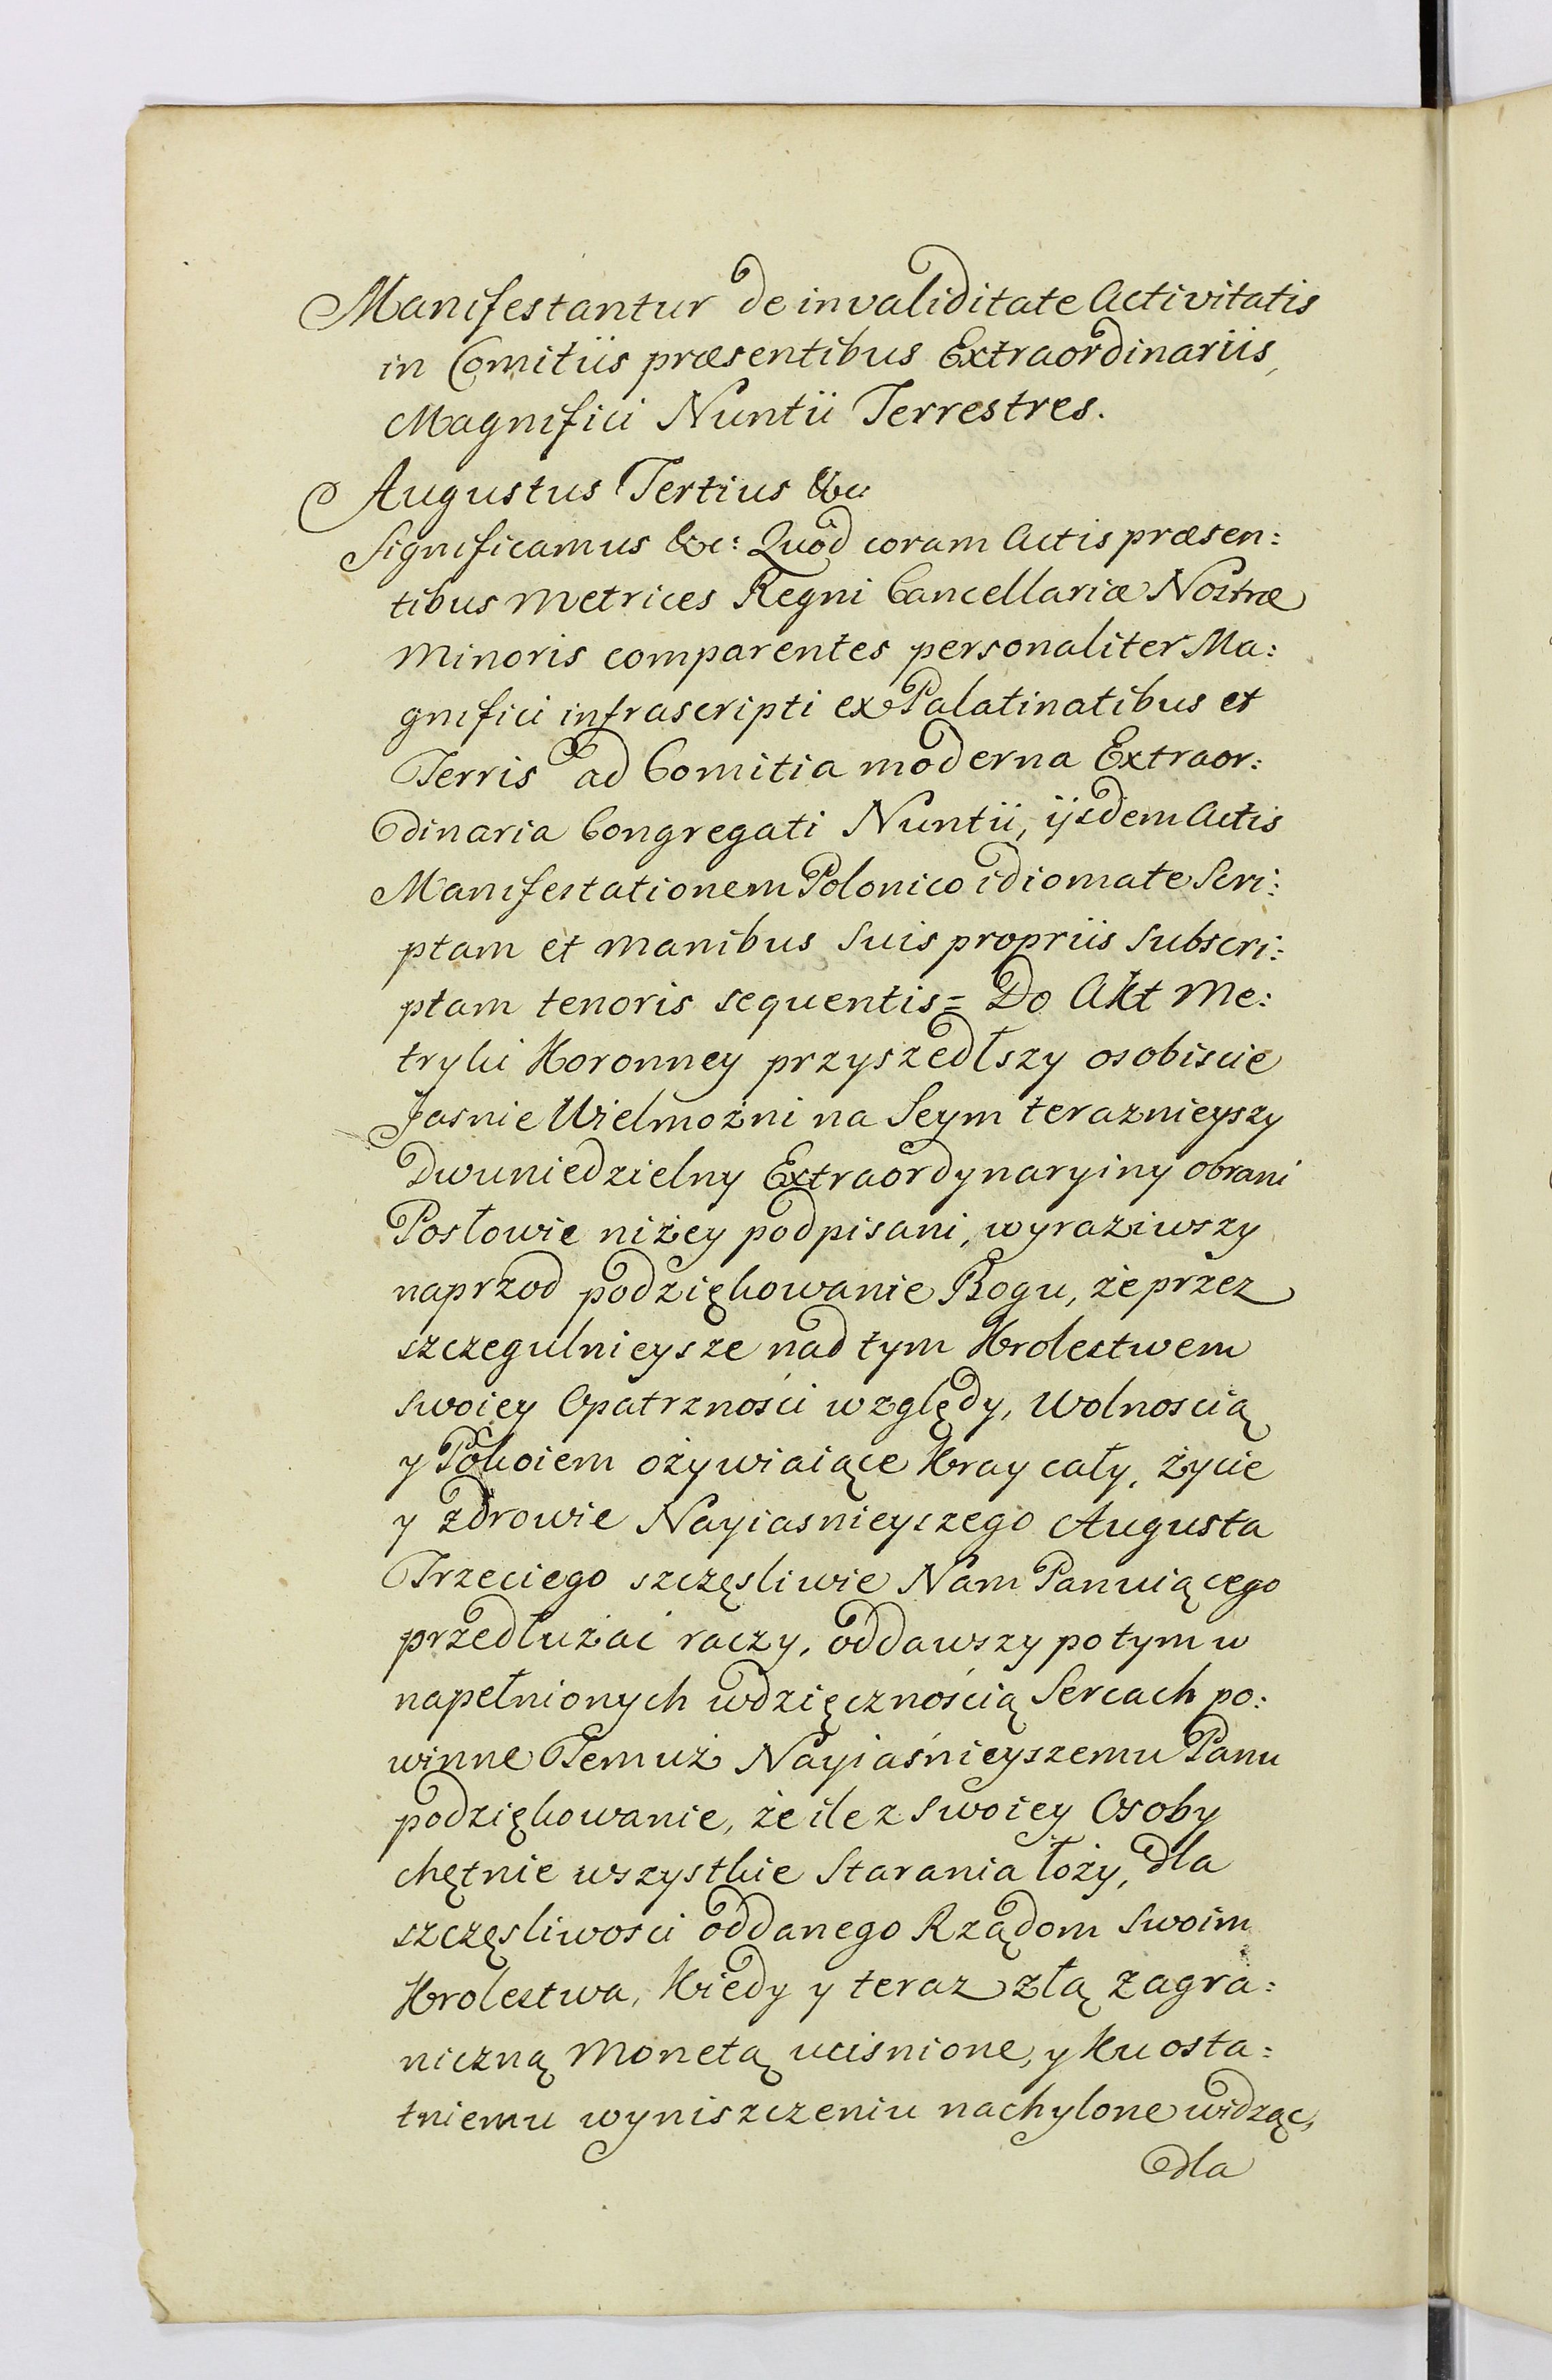 Manifestantur de invaliditate Activitatis
in Comitiis præsentibus Extraordinariis,
Magnifici Nuntii Terrestres.
Augustus Tertius &c:
Significamus &c: Quôd coram Actis præsen:
tibus Metrices Regni Cancellariæ Nostræ
Minoris comparentes personaliter Ma:
gnifici infrascripti ex Palatinatibus et
Terris ad Comitia moderna Extraor:
dinaria Congregati Nuntii, ijsdem Actis
Manifestationem Polonico idiomate Scri:
ptam et manibus suis propriis subscri:
ptam tenoris sequentis = Do Akt Me:
tryki Koronney przyszedłszy osobiscie
Jasnie Wielmożni na Seym terazniejszy
Dwuniedzielny Extraordynaryiny obrani
Posłowie niżey podpisani, wyraziwszy
naprzod podziękowanie Bogu, że przez
szczegulnieysze nad tym Krolestwem
swoiey Opatrzności względy, Wolnoscią
y Pokoiem ożywiaiące Kray cały, życie
y zdrowie Nayiasnieyszego Augusta
Trzeciego szczęsliwie Nam Panuiącego
przedłużać raczy, oddawszy potym w
napełnionych wdzięcznością Sercach po:
winne Temuż Nayiaśnieyszemu Panu
podziękowanie, że ile z swoiey Osoby
chętnie wszystkie Starania łoży, dla
szczęsliwosci oddanego Rządom Swoim
Krolestwa, Kiedy y teraz złą zagra:
niczną Monetą ucisnione, y ku osta:
tniemu wyniszczeniu nachylone widząc,
dla